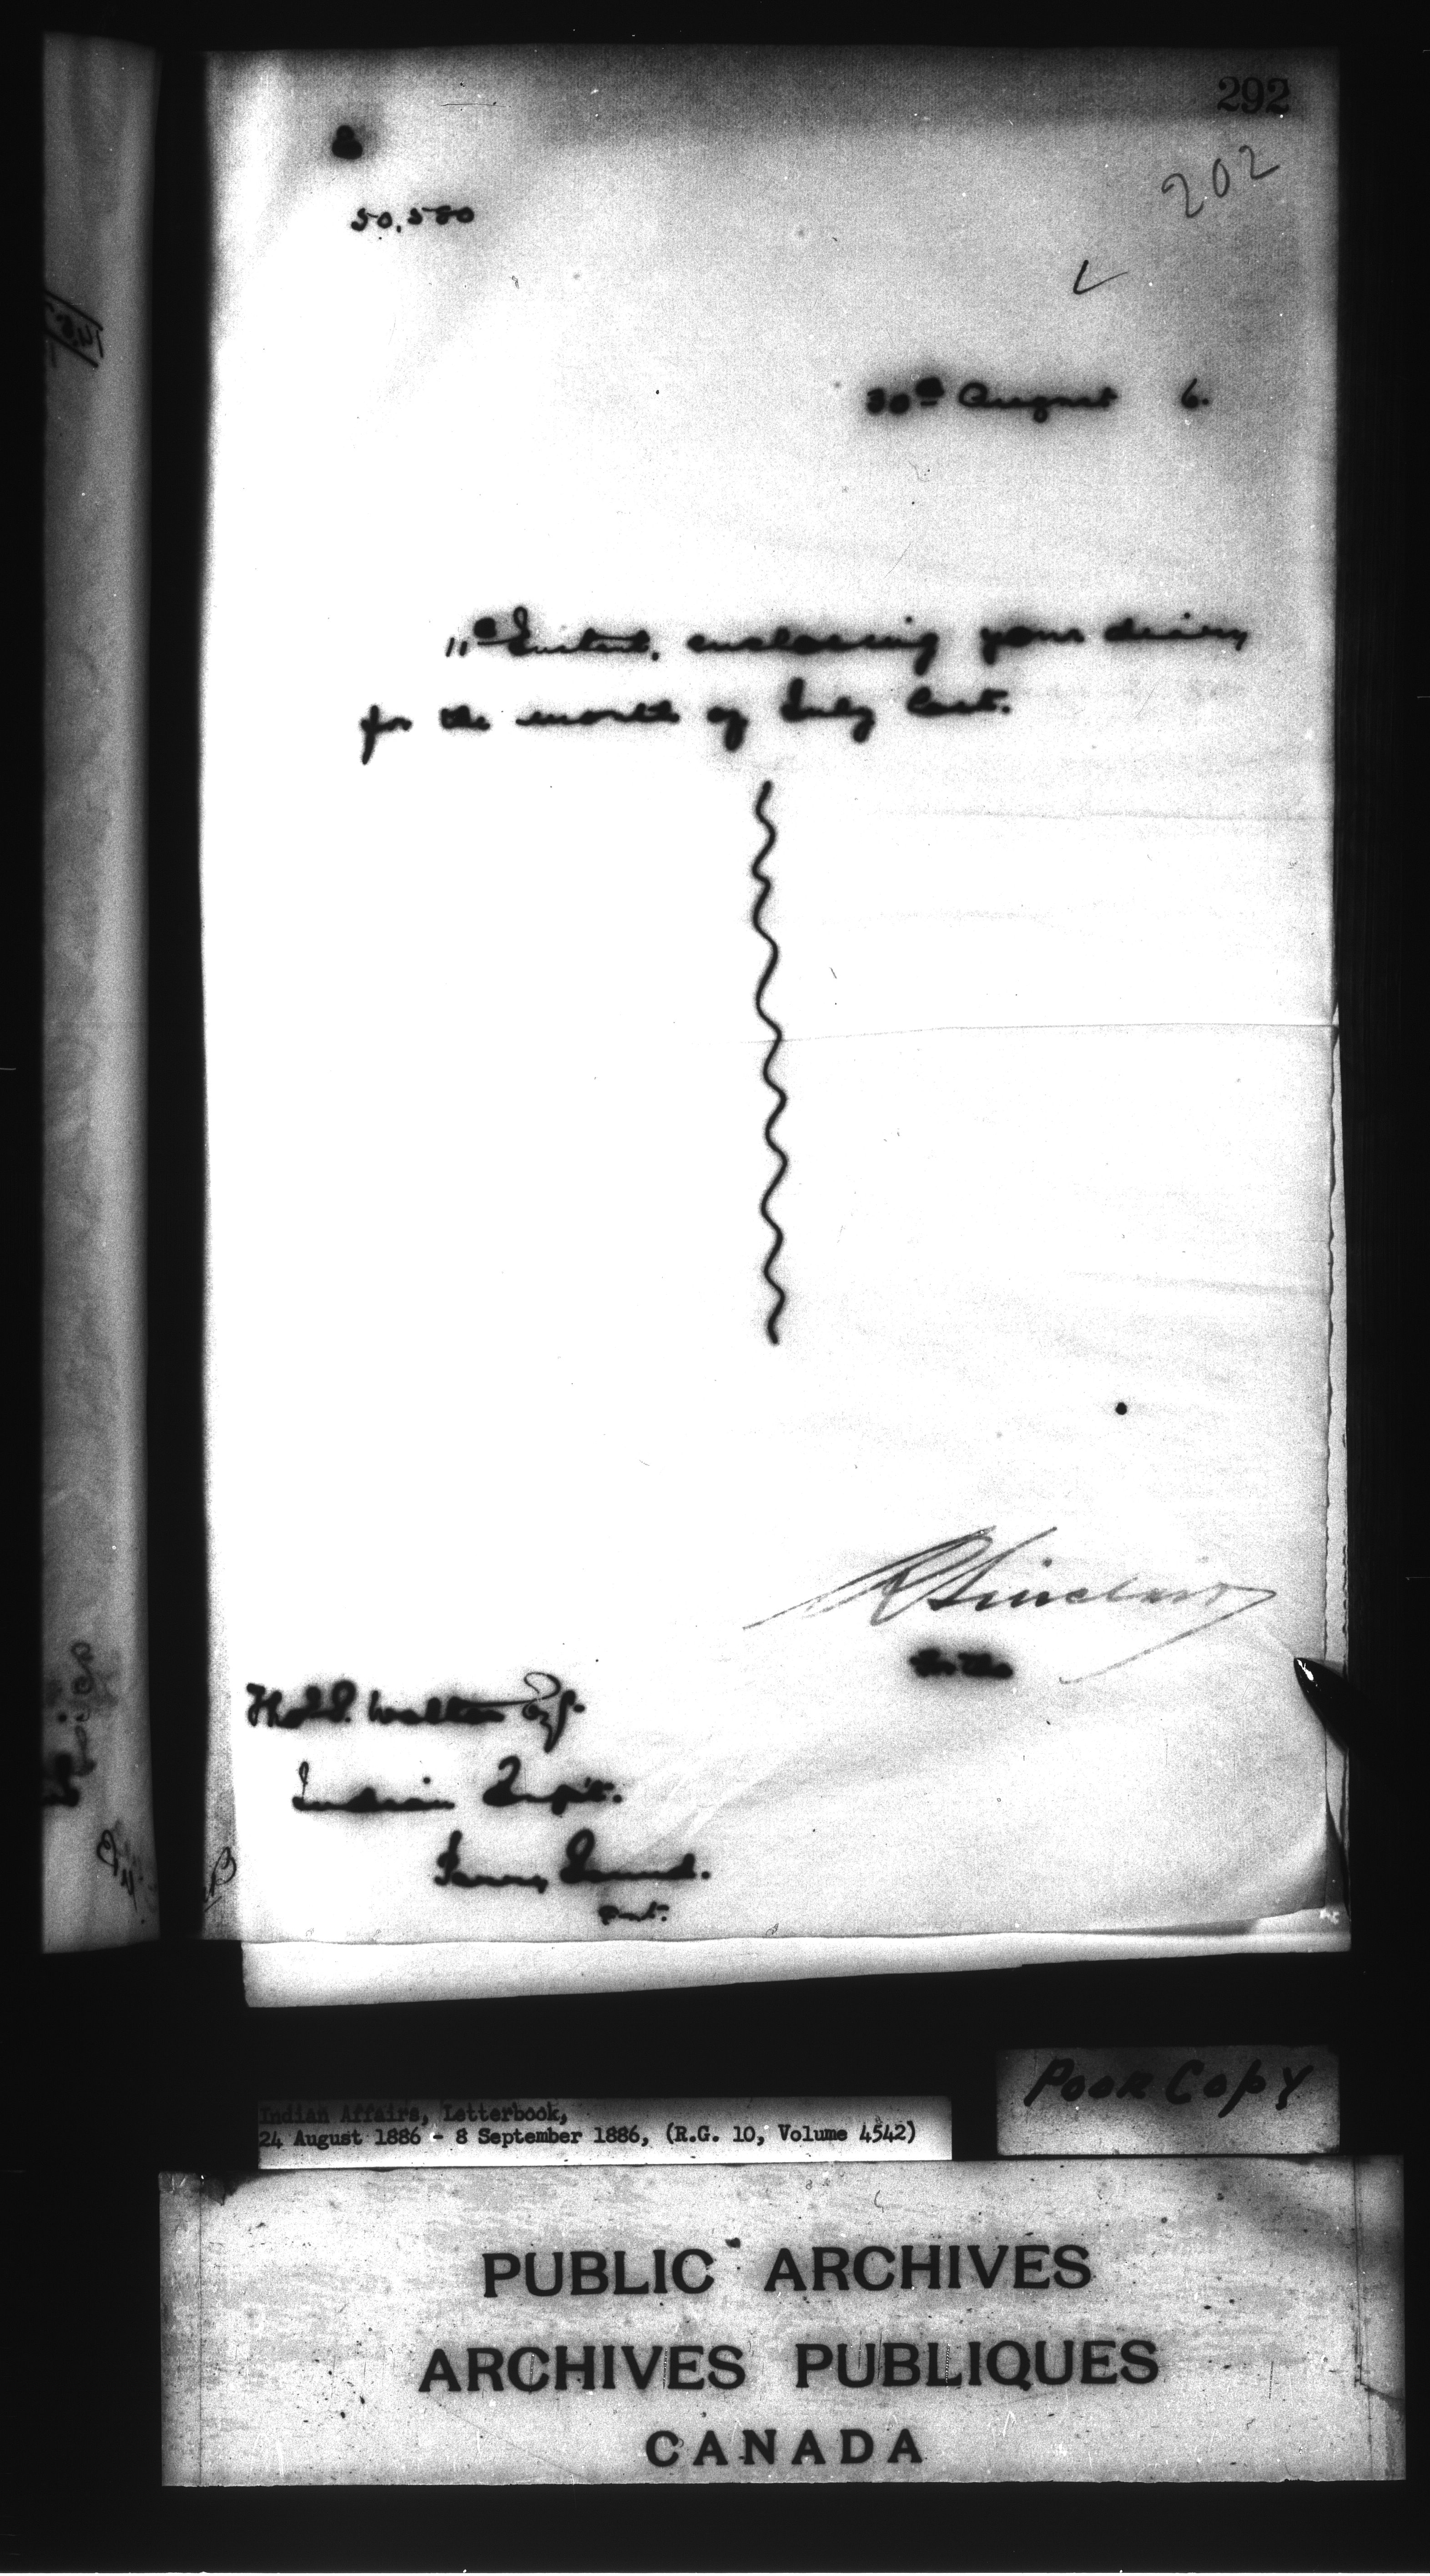 292
202
50,580
30th August 6.
11th Instant, enclosing your diary
for the month of July last.
R Sinclair
Thos S. Walton Esq.
Indian Supt.
Parry Sound.
Ont.
Poor Copy
Indian Affairs, Letterbook,
24 August 1886 - 8 September 1886, (R.G. 10, Volume 4542)
PUBLIC ARCHIVES
ARCHIVES PUBLIQUES
CANADA